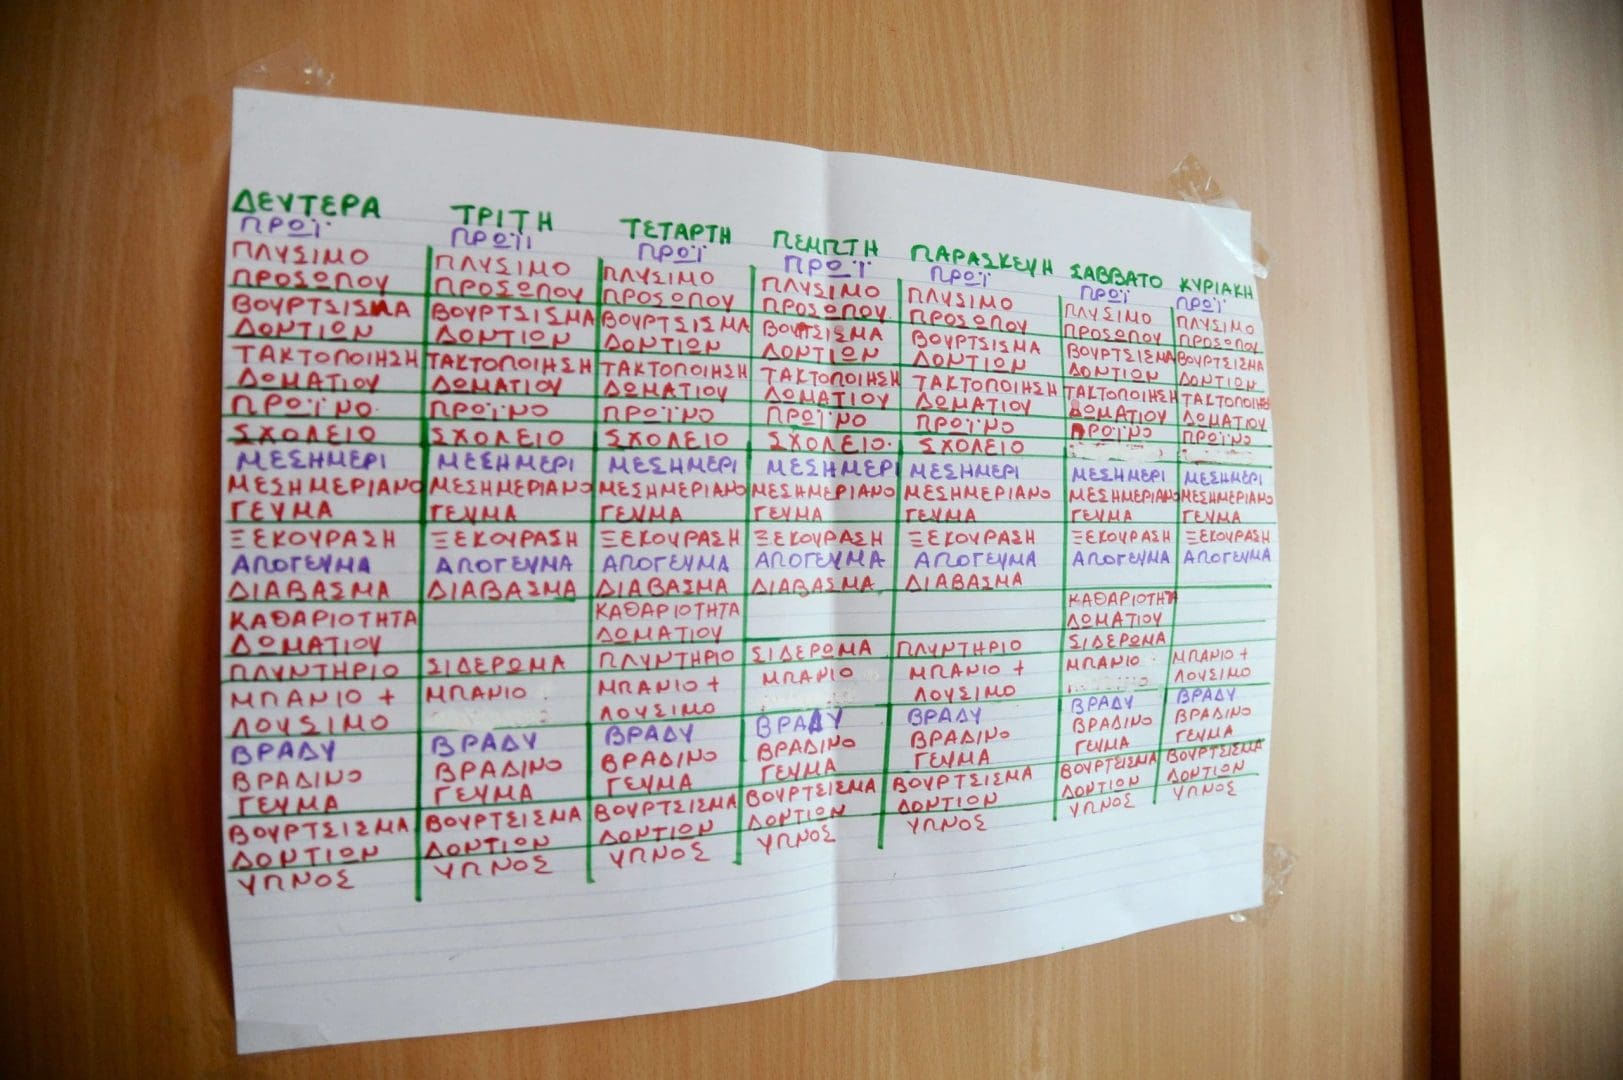 ΔΕΥΤΕΡΑ ΤΡΙΤΗ ΤΕΤΑΡΤΗ ΠΕΜΠΤΗ ΠΑΡΑΣΚΕΥΗ ΣΑΒΒΑΤΟ ΚΥΡΙΑΚΗ
ΠΡΩΪ ΠΡΩΪΙ ΠΡΩΪ ΠΡΩΪ ΠΡΩΪ ΠΡΩΪ ΠΡΩΪ
ΠΛΥΣΙΜΟ ΠΛΥΣΙΜΟ ΠΛΥΣΙΜΟ ΠΛΥΣΙΜΟ ΠΛΥΣΙΜΟ ΠΛΥΣΙΜΟ ΠΛΥΣΙΜΟ
ΠΡΟΣΩΠΟΥ ΠΡΟΣΩΠΟΥ ΠΡΟΣΩΠΟΥ ΠΡΟΣΩΠΟΥ ΠΡΟΣΩΠΟΥ ΠΡΟΣΩΠΟΥ ΠΡΟΣΩΠΟΥ
ΒΟΥΡΤΣΙΣΜΑ ΒΟΥΡΤΣΙΣΜΑ ΒΟΥΡΤΣΙΣΜΑ ΒΟΥΡΤΣΙΣΜΑ ΒΟΥΡΤΣΙΣΜΑ ΒΟΥΡΤΣΙΣΜΑ ΒΟΥΡΤΣΙΣΜΑ
ΔΟΝΤΙΩΝ ΔΟΝΤΙΩΝ ΔΟΝΤΙΩΝ ΔΟΝΤΙΩΝ ΔΟΝΤΙΩΝ ΔΟΝΤΙΩΝ ΔΟΝΤΙΩΝ
ΤΑΚΤΟΠΟΙΗΣΗ ΤΑΚΤΟΠΟΙΗΣΗ ΤΑΚΤΟΠΟΙΗΣΗ ΤΑΚΤΟΠΟΙΗΣΗ ΤΑΚΤΟΠΟΙΗΣΗ ΤΑΚΤΟΠΟΙΗΣΗ ΤΑΚΤΟΠΟΙΗΣΗ
ΔΩΜΑΤΙΟΥ ΔΩΜΑΤΙΟΥ ΔΩΜΑΤΙΟΥ ΔΩΜΑΤΙΟΥ ΔΩΜΑΤΙΟΥ ΔΩΜΑΤΙΟΥ ΔΩΜΑΤΙΟΥ
ΠΡΩΪΝΟ ΠΡΩΪΝΟ ΠΡΩΪΝΟ ΠΡΩΪΝΟ ΠΡΩΪΝΟ ΠΡΩΪΝΟ ΠΡΩΪΝΟ
ΣΧΟΛΕΙΟ ΣΧΟΛΕΙΟ ΣΧΟΛΕΙΟ ΣΧΟΛΕΙΟ ΣΧΟΛΕΙΟ
ΜΕΣΗΜΕΡΙ ΜΕΣΗΜΕΡΙ ΜΕΣΗΜΕΡΙ ΜΕΣΗΜΕΡΙ ΜΕΣΗΜΕΡΙ ΜΕΣΗΜΕΡΙ ΜΕΣΗΜΕΡΙ
ΜΕΣΗΜΕΡΙΑΝΟ ΜΕΣΗΜΕΡΙΑΝΟ ΜΕΣΗΜΕΡΙΑΝΟ ΜΕΣΗΜΕΡΙΑΝΟ ΜΕΣΗΜΕΡΙΑΝΟ ΜΕΣΗΜΕΡΙΑΝΟ ΜΕΣΗΜΕΡΙΑΝΟ
ΓΕΥΜΑ ΓΕΥΜΑ ΓΕΥΜΑ ΓΕΥΜΑ ΓΕΥΜΑ ΓΕΥΜΑ ΓΕΥΜΑ
ΞΕΚΟΥΡΑΣΗ ΞΕΚΟΥΡΑΣΗ ΞΕΚΟΥΡΑΣΗ ΞΕΚΟΥΡΑΣΗ ΞΕΚΟΥΡΑΣΗ ΞΕΚΟΥΡΑΣΗ ΞΕΚΟΥΡΑΣΗ
ΑΠΟΓΕΥΜΑ ΑΠΟΓΕΥΜΑ ΑΠΟΓΕΥΜΑ ΑΠΟΓΕΥΜΑ ΑΠΟΓΕΥΜΑ ΑΠΟΓΕΥΜΑ ΑΠΟΓΕΥΜΑ
ΔΙΑΒΑΣΜΑ ΔΙΑΒΑΣΜΑ ΔΙΑΒΑΣΜΑ ΔΙΑΒΑΣΜΑ ΔΙΑΒΑΣΜΑ
ΚΑΘΑΡΙΟΤΗΤΑ ΚΑΘΑΡΙΟΤΗΤΑ ΚΑΘΑΡΙΟΤΗΤΑ
ΔΩΜΑΤΙΟΥ ΔΩΜΑΤΙΟΥ ΔΩΜΑΤΙΟΥ
ΠΛΥΝΤΗΡΙΟ ΣΙΔΕΡΩΜΑ ΠΛΥΝΤΗΡΙΟ ΣΙΔΕΡΩΜΑ ΠΛΥΝΤΗΡΙΟ ΣΙΔΕΡΩΜΑ
ΜΠΑΝΙΟ + ΜΠΑΝΙΟ ΜΠΑΝΙΟ + ΜΠΑΝΙΟ ΜΠΑΝΙΟ + ΜΠΑΝΙΟ ΜΠΑΝΙΟ +
ΛΟΥΣΙΜΟ ΛΟΥΣΙΜΟ ΛΟΥΣΙΜΟ ΛΟΥΣΙΜΟ
ΒΡΑΔΥ ΒΡΑΔΥ ΒΡΑΔΥ ΒΡΑΔΥ ΒΡΑΔΥ ΒΡΑΔΥ ΒΡΑΔΥ
ΒΡΑΔΙΝΟ ΒΡΑΔΙΝΟ ΒΡΑΔΙΝΟ ΒΡΑΔΙΝΟ ΒΡΑΔΙΝΟ ΒΡΑΔΙΝΟ ΒΡΑΔΙΝΟ
ΓΕΥΜΑ ΓΕΥΜΑ ΓΕΥΜΑ ΓΕΥΜΑ ΓΕΥΜΑ ΓΕΥΜΑ ΓΕΥΜΑ
ΒΟΥΡΤΣΙΣΜΑ ΒΟΥΡΤΣΙΣΜΑ ΒΟΥΡΤΣΙΣΜΑ ΒΟΥΡΤΣΙΣΜΑ ΒΟΥΡΤΣΙΣΜΑ ΒΟΥΡΤΣΙΣΜΑ ΒΟΥΡΤΣΙΣΜΑ
ΔΟΝΤΙΩΝ ΔΟΝΤΙΩΝ ΔΟΝΤΙΩΝ ΔΟΝΤΙΩΝ ΔΟΝΤΙΩΝ ΔΟΝΤΙΩΝ ΔΟΝΤΙΩΝ
ΥΠΝΟΣ ΥΠΝΟΣ ΥΠΝΟΣ ΥΠΝΟΣ ΥΠΝΟΣ ΥΠΝΟΣ ΥΠΝΟΣ